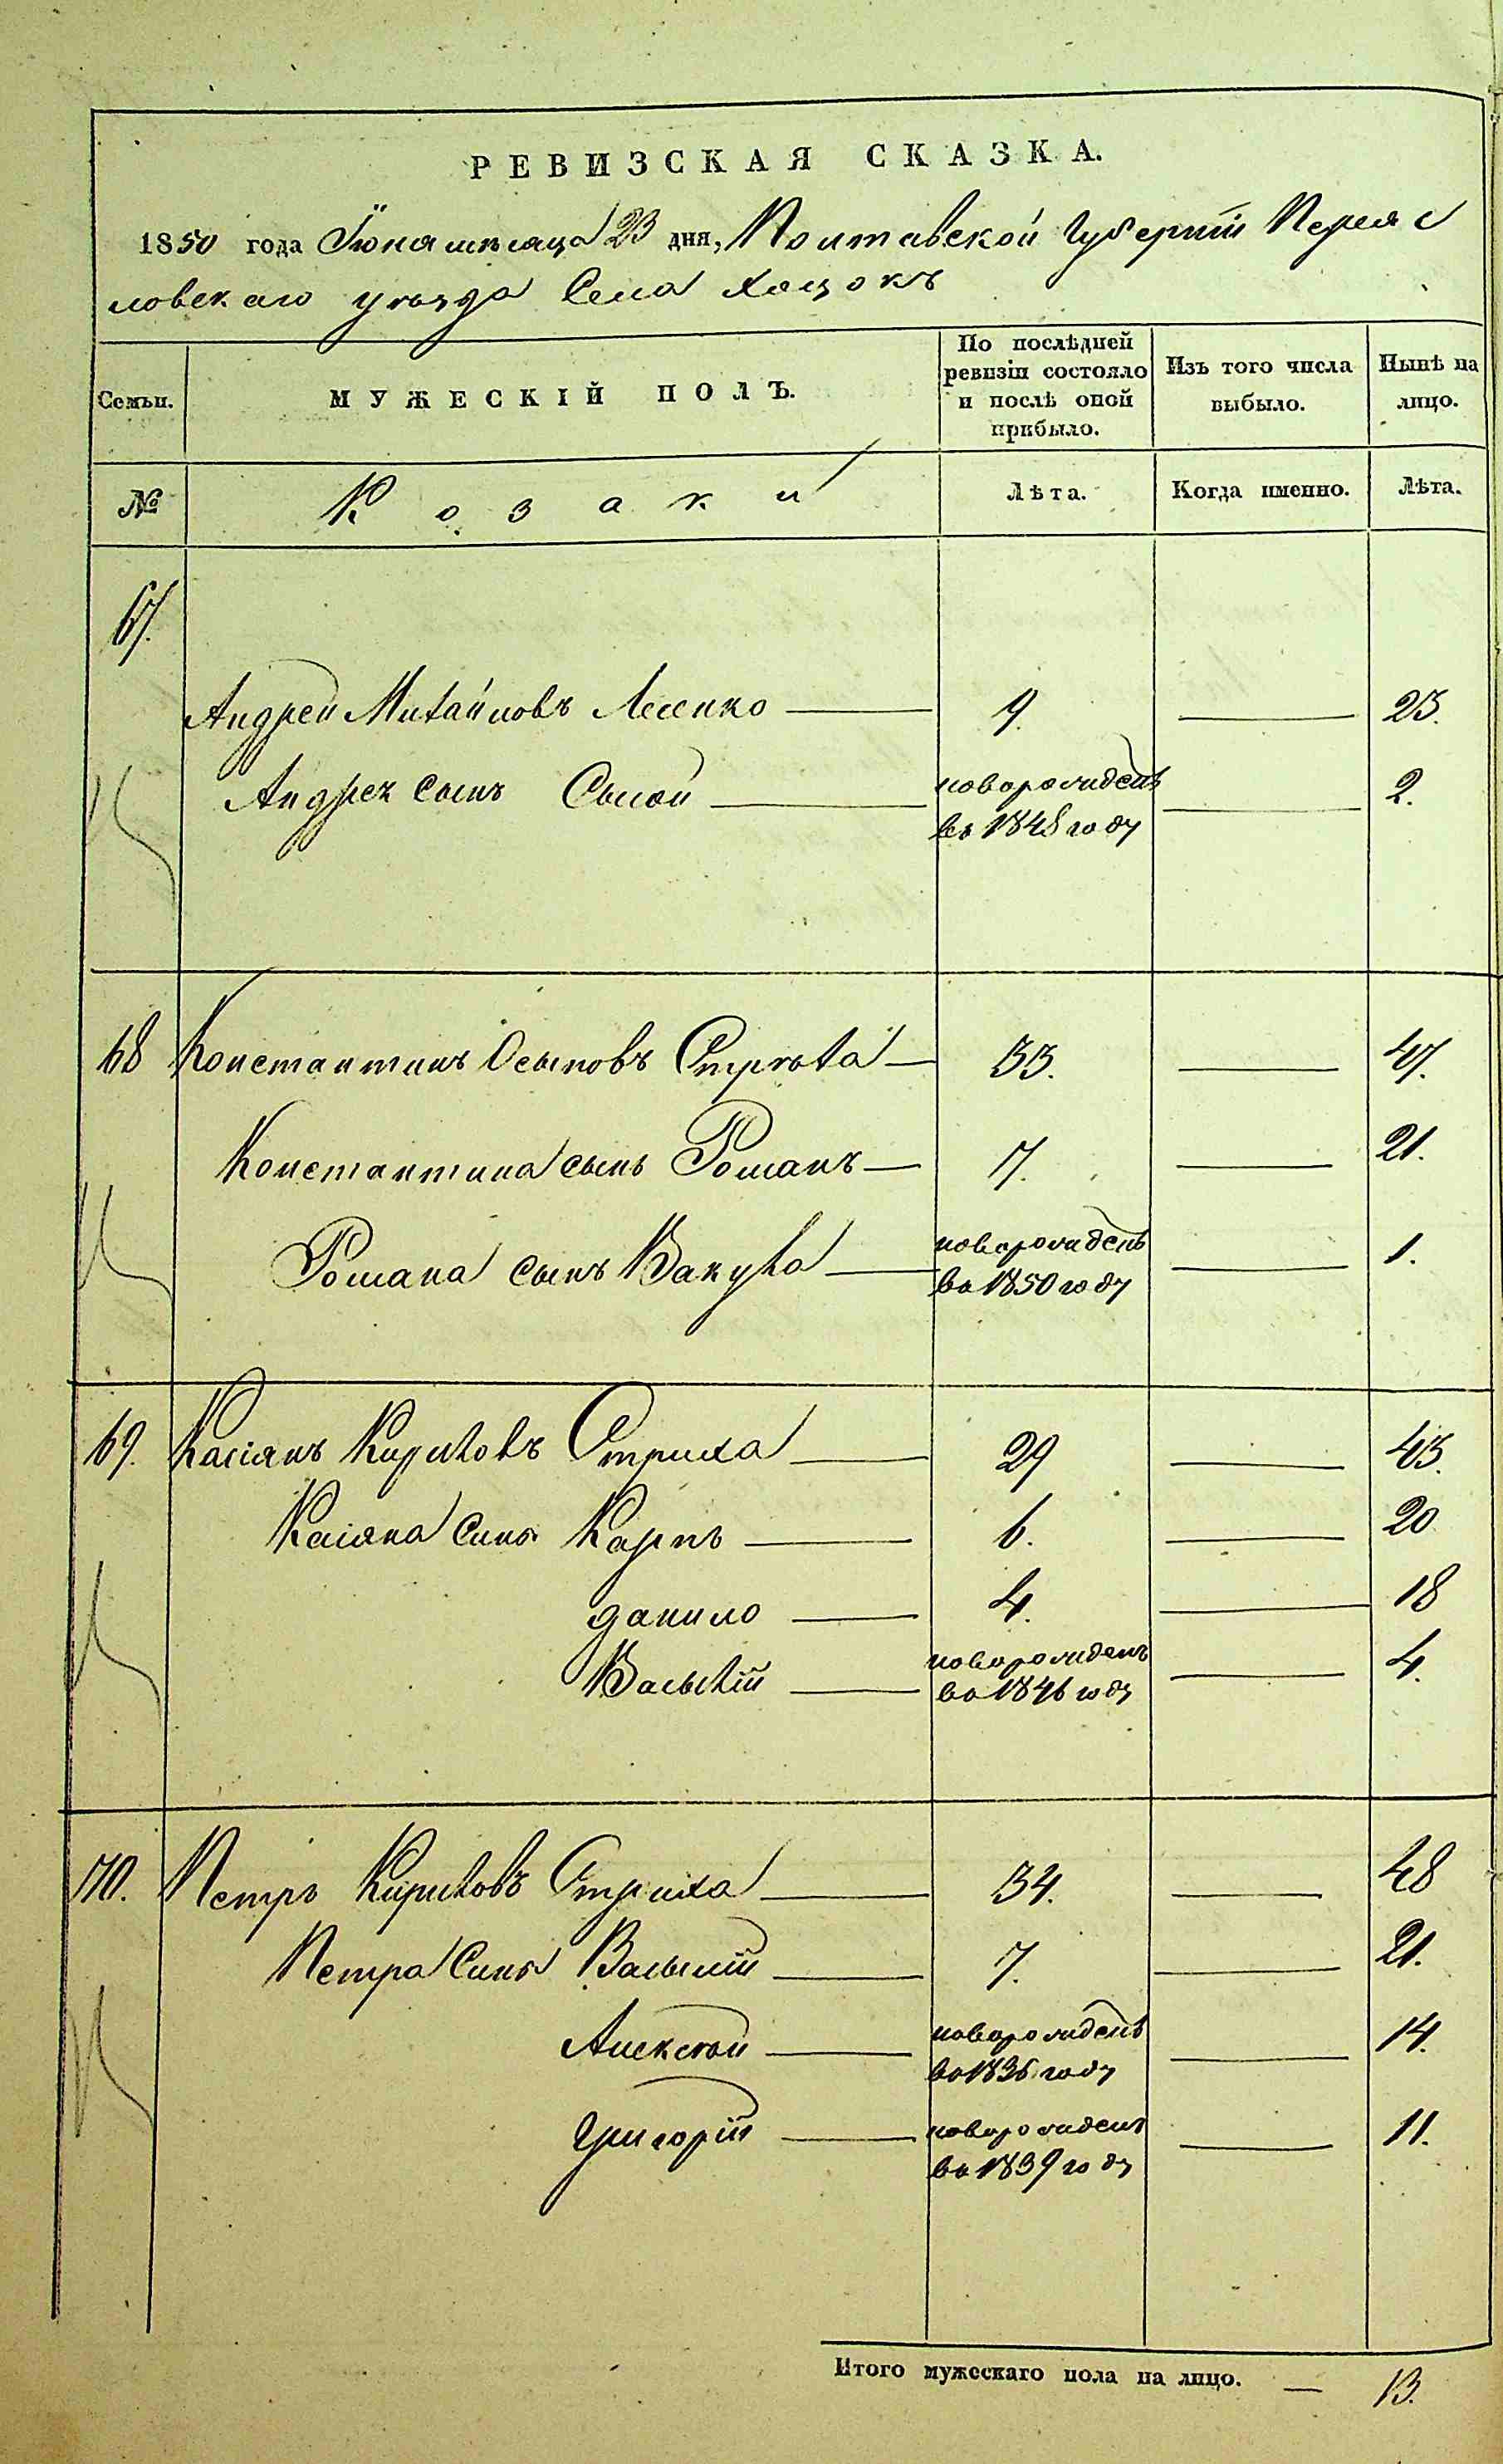 РЕВИЗСКАЯ СКАЗКА.
1850 года Іюня мѣсяца 23 дня, Полтавской Губерніи Переяс
ловскаго уѣзда Села Хоцокъ
Семьи.
МУЖЕСКІЙ ПОЛЪ.
По послѣдней ревизіи состояло и послѣ оной прибыло.
Изъ того числа выбыло.
Нынѣ на лицо.
№ Козаки Лѣта. Когда именно. Лѣта.
67.
Андрей Михайловъ Лесенко 9. 23.
Андрея сынъ Сысой новорожденъ 2.
въ 1848 году
68 Константинъ Осыповъ Стрѣха 33. 47.
Константина сынъ Романъ 7. 21.
Романа сынъ Вакула новорожденъ 1.
во 1850 году
69. Касіянъ Кириловъ Стриха 29 43.
Касіяна Сынъ Карпъ 6. 20
данило 4. 18
Васылій новорожденъ 4.
во 1846 году
70. Петръ Кириловъ Стриха 34. 48
Петра Сынъ Васылій 7. 21.
Алексѣй новорожденъ 14.
во 1836 году
Григорій новорожденъ 11.
во 1839 году
Итого мужескаго пола на лицо. — 13.